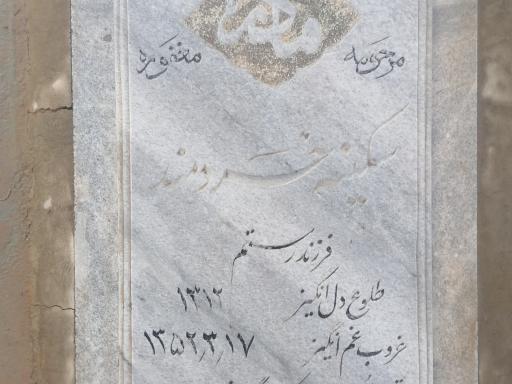 مرحومه مغفوره
سکینه خردمند
فرزند رستم
طلوع دل انگیز ۱۳۱۲
غروب غم انگیز ۱۳۵۲٫۳٫۱۷